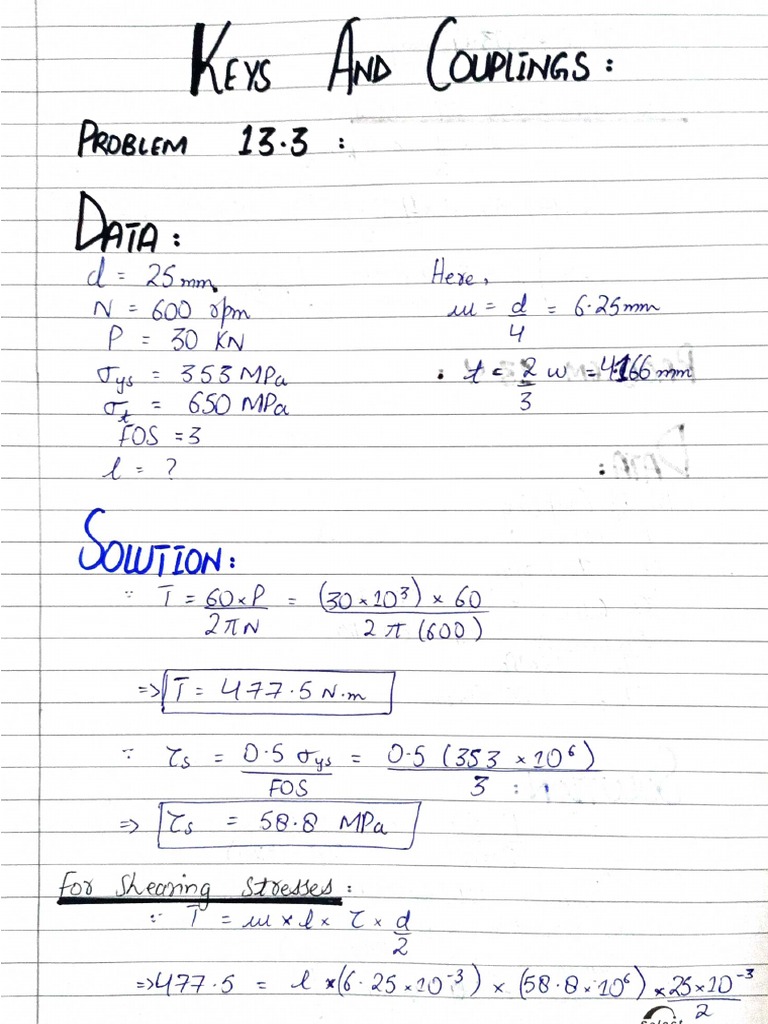 KEYS AND COUPLINGS:
PROBLEM 13.3 :
DATA:
d = 25mm
N = 600 rpm
P = 30 KN
σys = 353 MPa
σt = 650 MPa
FOS = 3
l = ?
Here,
w = d/4 = 6.25mm
t = 2/3 w = 4.166 mm
SOLUTION:
∵ T = 60×P / 2πN = (30×10³) × 60 / 2π(600)
=> T = 477.5 N.m
∵ τs = 0.5 σys / FOS = 0.5 (353 × 10⁶) / 3
=> τs = 58.8 MPa
For Shearing Stresses:
∵ T = w × l × τ × d/2
=> 477.5 = l × (6.25×10⁻³) × (58.8×10⁶) × 25×10⁻³ / 2